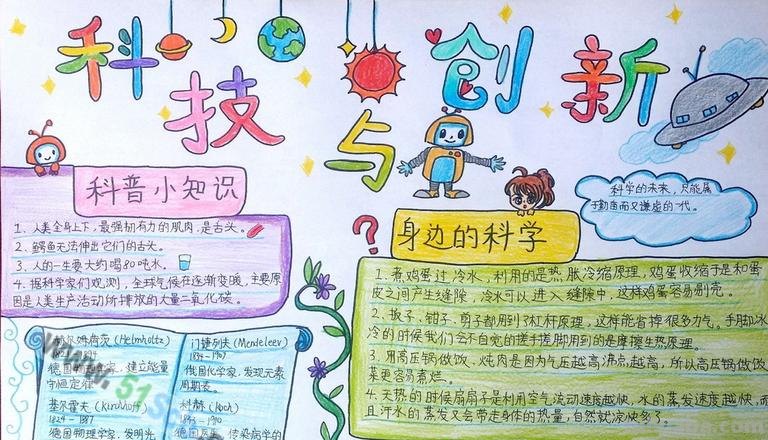 科技与创新
科普小知识
1、人类全身上下，最强韧有力的肌肉，是舌头。
2、鳄鱼无法伸出它们的舌头。
3、人的一生要大约喝80吨水。
4、据科学家们观测，全球气候在逐渐变暖，主要原
因是人类生产活动所排放的大量二氧化碳。
科学的未来，只能属
于勤奋而又谦虚的一代。
身边的科学
1、煮鸡蛋过冷水，利用的是热胀冷缩原理，鸡蛋收缩于是和蛋
皮之间产生缝隙，冷水可以进入缝隙中，这样鸡蛋容易剥壳。
2、扳子、钳子、剪子都用到了杠杆原理，这样能省掉很多力气。手脚冰
冷的时候我们会不自觉的搓手搓脚用到的是摩擦生热原理。
3、用高压锅做饭、炖肉是因为气压越高沸点越高，所以高压锅做饭
菜更容易煮烂。
4、天热的时候扇扇子是利用空气流动速度越快，水的蒸发速度越快，而
且汗水的蒸发又会带走身体的热量，自然就凉快多了。
(Helmholtz)
德国
家，建立能量
守恒定律
门捷列夫 (Mendeleev)
1834-1907
俄国化学家，发现元素
周期表。
基尔霍夫 (Kirchhoff)
1824-1887
德国物理学家，发明光
(Koch)
传染病学的
www.51s